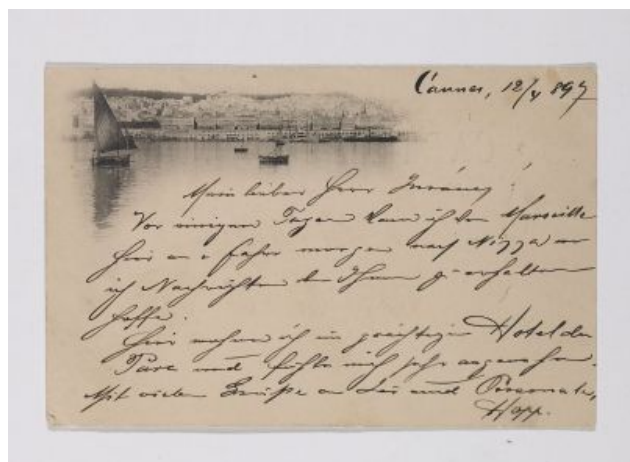 Cannes, 12/4 897
Mein lieber Herr
Vor einigen Tagen kam ich von Marseille
hier an u fahre morgen nach Nizza wo
ich Nachrichten von Ihnen zu erhalten
hoffe.
Hier wohne ich im prächtigen Hotel du
Parc und fühle mich sehr angenehm.
Mit vielen Grüßen an Sie und
Happ.